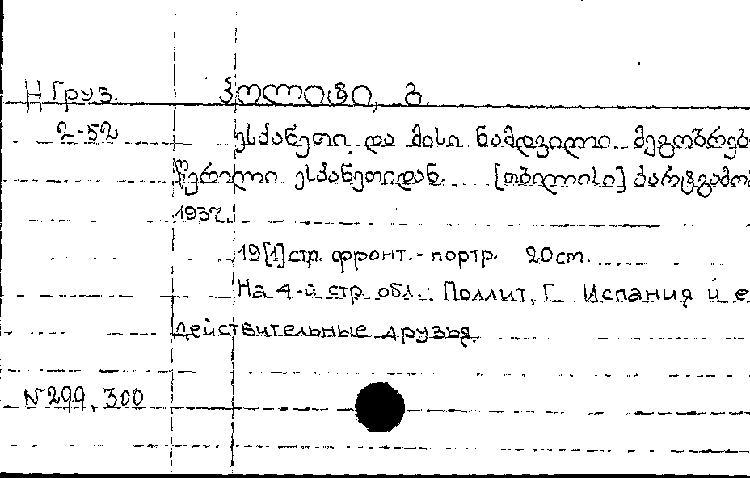 Н Груз. პოლიტი, გ.
2-52 ესპანეთი და მისი ნამდვილი მეგობრებ
წერილი ესპანეთიდან. [თბილისი] პარტგამო
1937.
19[1] стр. фронт.-портр. 20 cm.
На 4-й стр. обл.: Поллит, Г. Испания и е
действительные друзья.
N 299, 300